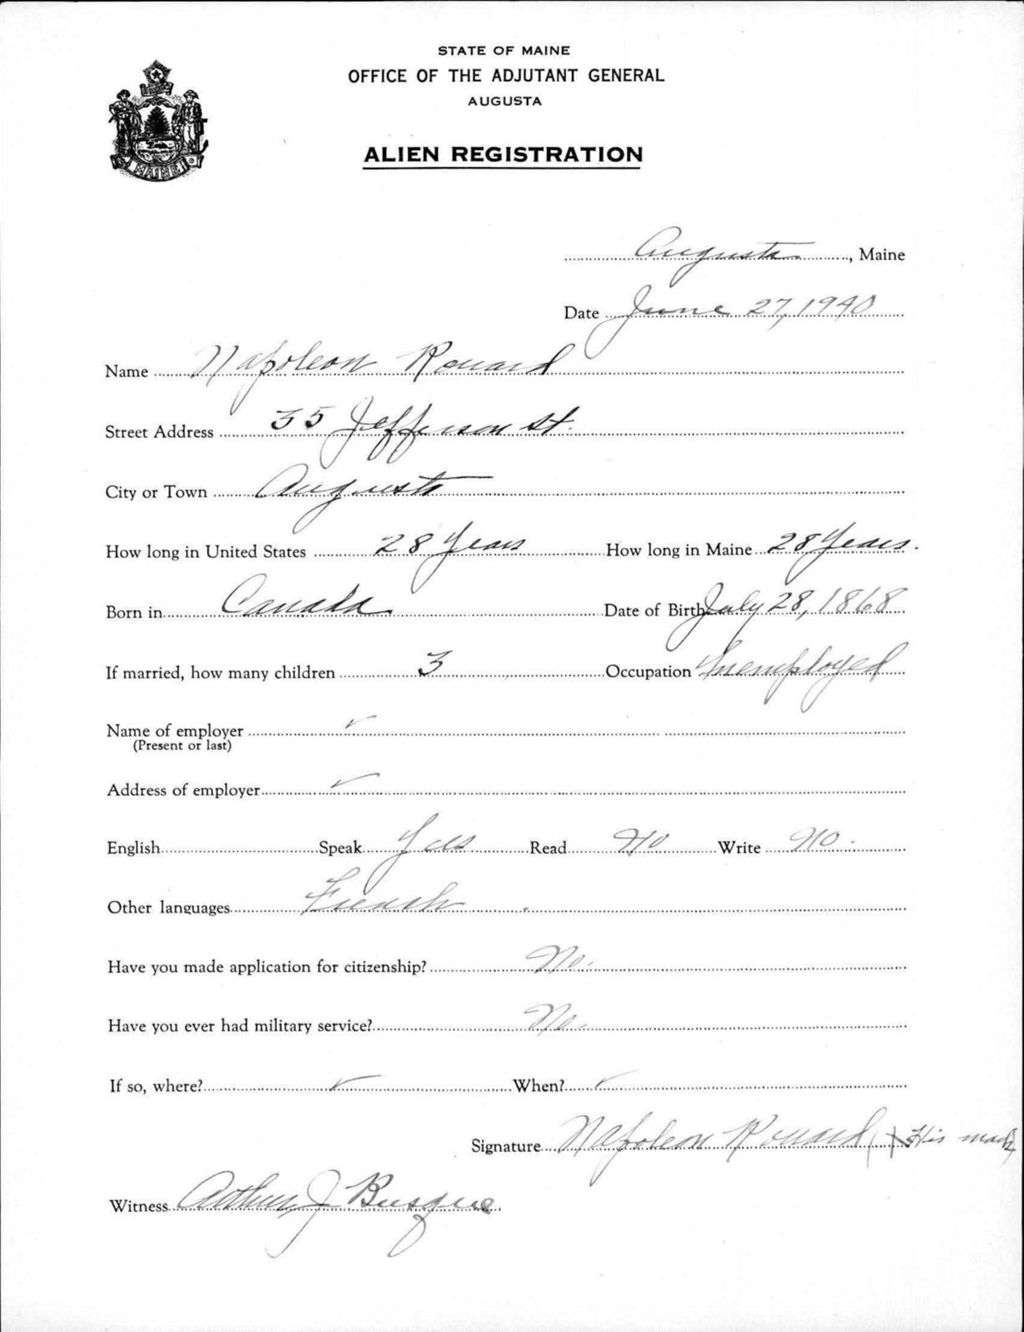 STATE OF MAINE
OFFICE OF THE ADJUTANT GENERAL
AUGUSTA
ALIEN REGISTRATION
MAINE
Augusta, Maine
Date June 27, 1940
Name Napoleon Rouard
Street Address 35 Jefferson St.
City or Town Augusta
How long in United States 28 Years How long in Maine 28 Years.
Born in Canada Date of Birth July 28, 1868
If married, how many children 3 Occupation Unemployed
Name of employer ✓
(Present or last)
Address of employer ✓
English Speak Yes Read No Write No.
Other languages French.
Have you made application for citizenship? No.
Have you ever had military service? No.
If so, where? ✓ When? ✓
Signature Napoleon Rouard (X His mark)
Witness Arthur J Busque